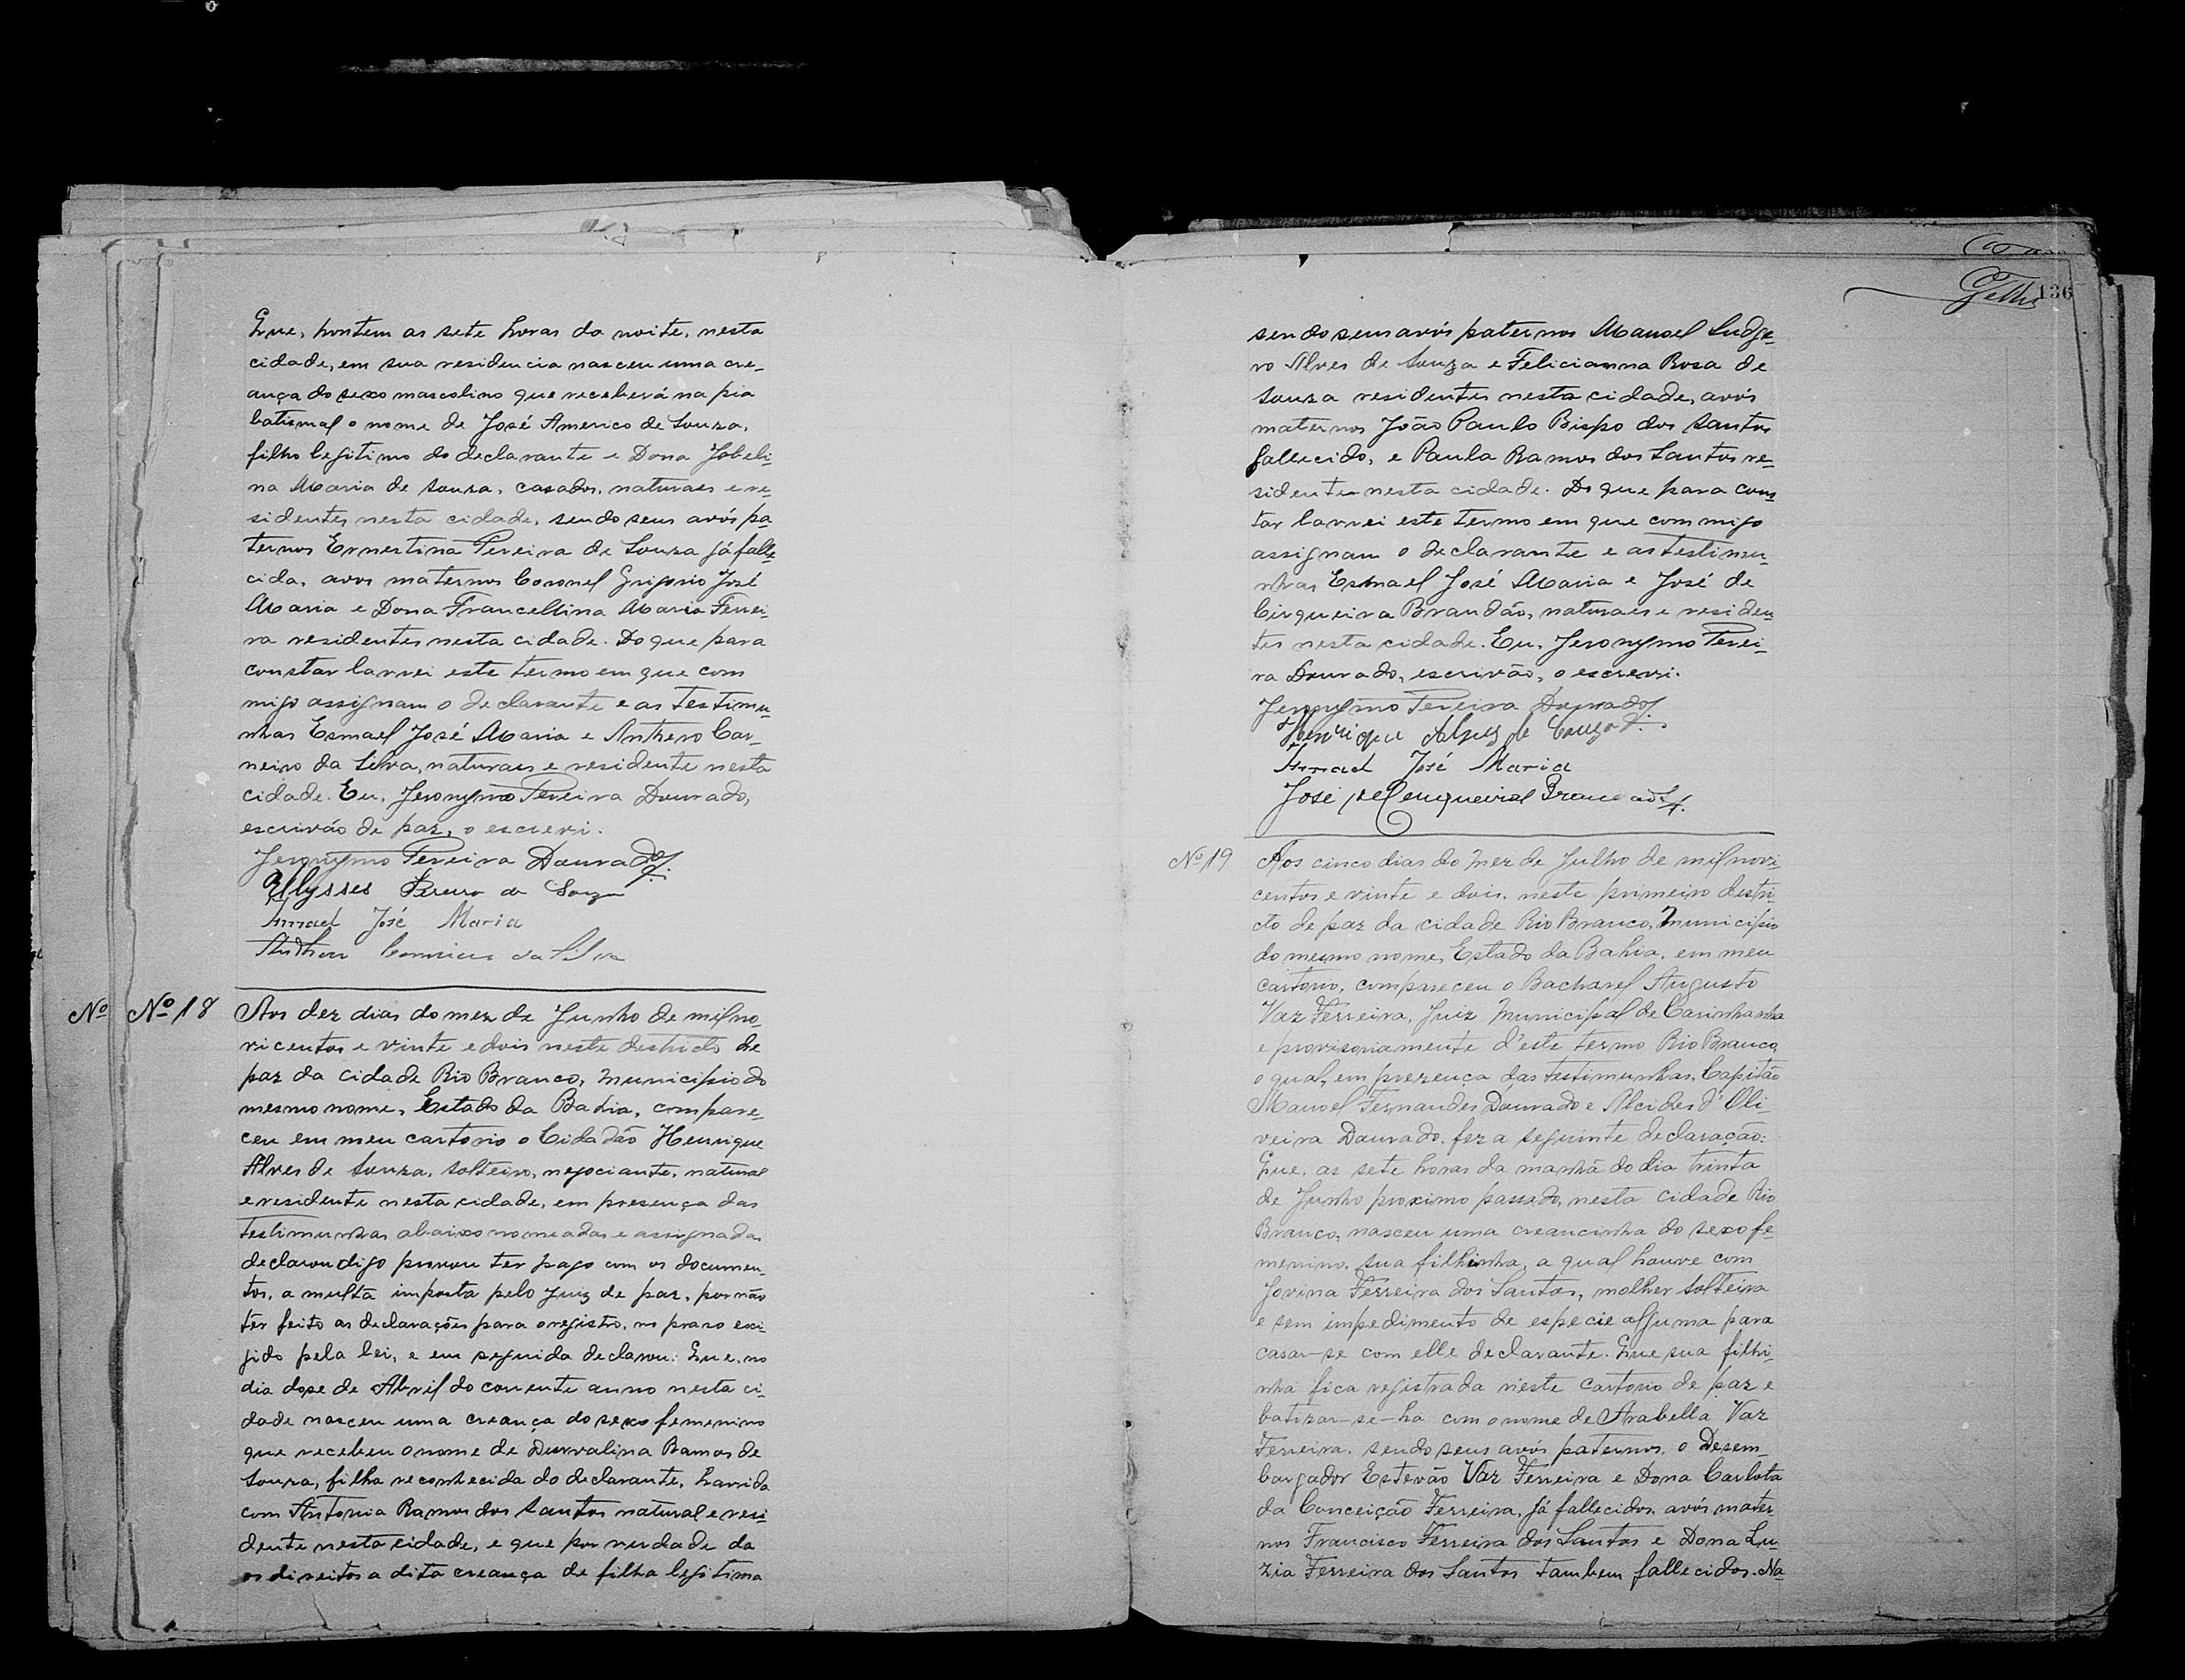 Que, hontem as sete horas da noite, nesta
cidade, em sua residencia nasceu uma cre-
ança do sexo mascolino que receberá na pia
batismal o nome de José Americo de Souza,
filho legitimo do declarante e Dona Jobeli-
na Maria de Souza, casados, naturaes e re-
sidentes nesta cidade, sendo seus avós pa-
ternos Ernestina Pereira de Souza já falle-
cida, avos maternos Coronel Grigorio José
Maria e Dona Francellina Maria Ferrei-
ra residentes nesta cidade. Do que para
constar lavrei este termo em que com
migo assignam o declarante e as testimu-
nhas Esmael José Maria e Anthero Car-
neiro da Silva, naturaes e residente nesta
cidade. Eu, Jeronymo Pereira Dourado,
escrivão de paz, o escrevi.
Jeronymo Pereira Dourado
Ulysses Pereira de Souza
Ismael José Maria
Anthero Carneiro da Silva
Nº
Nº 18
Aos dez dias do mez de Junho de mil no-
vicentos e vinte e dois neste destricto de
paz da cidade Rio Branco, municipio do
mesmo nome, Estado da Bahia, compare-
ceu em meu cartorio o Cidadão Henrique
Alves de Souza, solteiro, negociante, natural
e residente nesta cidade, em presença das
testimunhas abaixo nomeadas e assignadas
declarou digo provou ter pago com os documen-
tos, a multa imposta pelo Juiz de paz, por não
ter feito as declarações para o registro, no prazo exi-
gido pela lei, e em seguida declarou: Que, no
dia doze de Abril do corrente anno nesta ci-
dade nasceu uma creança do sexo femenino
que recebeu o nome de Durvalina Ramos de
Souza, filha reconhecida do declarante, havida
com Antonia Ramos dos Santos natural e resi-
dente nesta cidade, e que por verdade da
os direitos a dita creança de filha legitima
136
sendo seus avós paternos Manoel Ludge-
ro Alves de Souza e Felicianna Rosa de
Souza residentes nesta cidade, avós
maternos João Paulo Bispo dos Santos
fallecido, e Paula Ramos dos Santos re-
sidente nesta cidade. Do que para cons-
tar lavrei este termo em que commigo
assignam o declarante e as testimu-
nhas Esmael José Maria e José de
Cirqueira Brandão, naturaes e residen-
tes nesta cidade. Eu, Jeronymo Perei-
ra Dourado, escrivão, o escrevi.
Jeronymo Pereira Dourado
Henrique Alves de Souza
Ismael José Maria
José de Cerqueira Brandão
Nº 19
Aos cinco dias do mez de Julho de mil novi-
centos e vinte e dois, neste primeiro destri-
cto de paz da cidade Rio Branco, Municipio
do mesmo nome, Estado da Bahia, em meu
cartorio, compareceu o Bacharel Augusto
Vaz Ferreira, Juiz Municipal de Carinhanha
e provisoriamente d'este termo Rio Branco,
o qual, em prezença das testimunhas, Capitão
Manoel Fernandes Dourado e Alcides d'Oli-
veira Dourado, fez a seguinte declaração:
Que, as sete horas da manhã do dia trinta
de Junho proximo passado, nesta cidade Rio
Branco, nasceu uma creancinha do sexo fe-
menino, sua filhinha, a qual houve com
Jovina Ferreira dos Santos, molher solteira
e sem impedimento de especie alguma para
casar-se com elle declarante. Que sua filhi-
nha fica registrada n'este cartorio de paz e
batizar-se-ha com o nome de Arabella Vaz
Ferreira, sendo seus avós paternos, o Desem-
bargador Estevão Vaz Ferreira e Dona Carlota
da Conceição Ferreira, já fallecidos, avós mater-
nos Francisco Ferreira dos Santos e Dona Lu-
zia Ferreira dos Santos tambem fallecidos. Na-